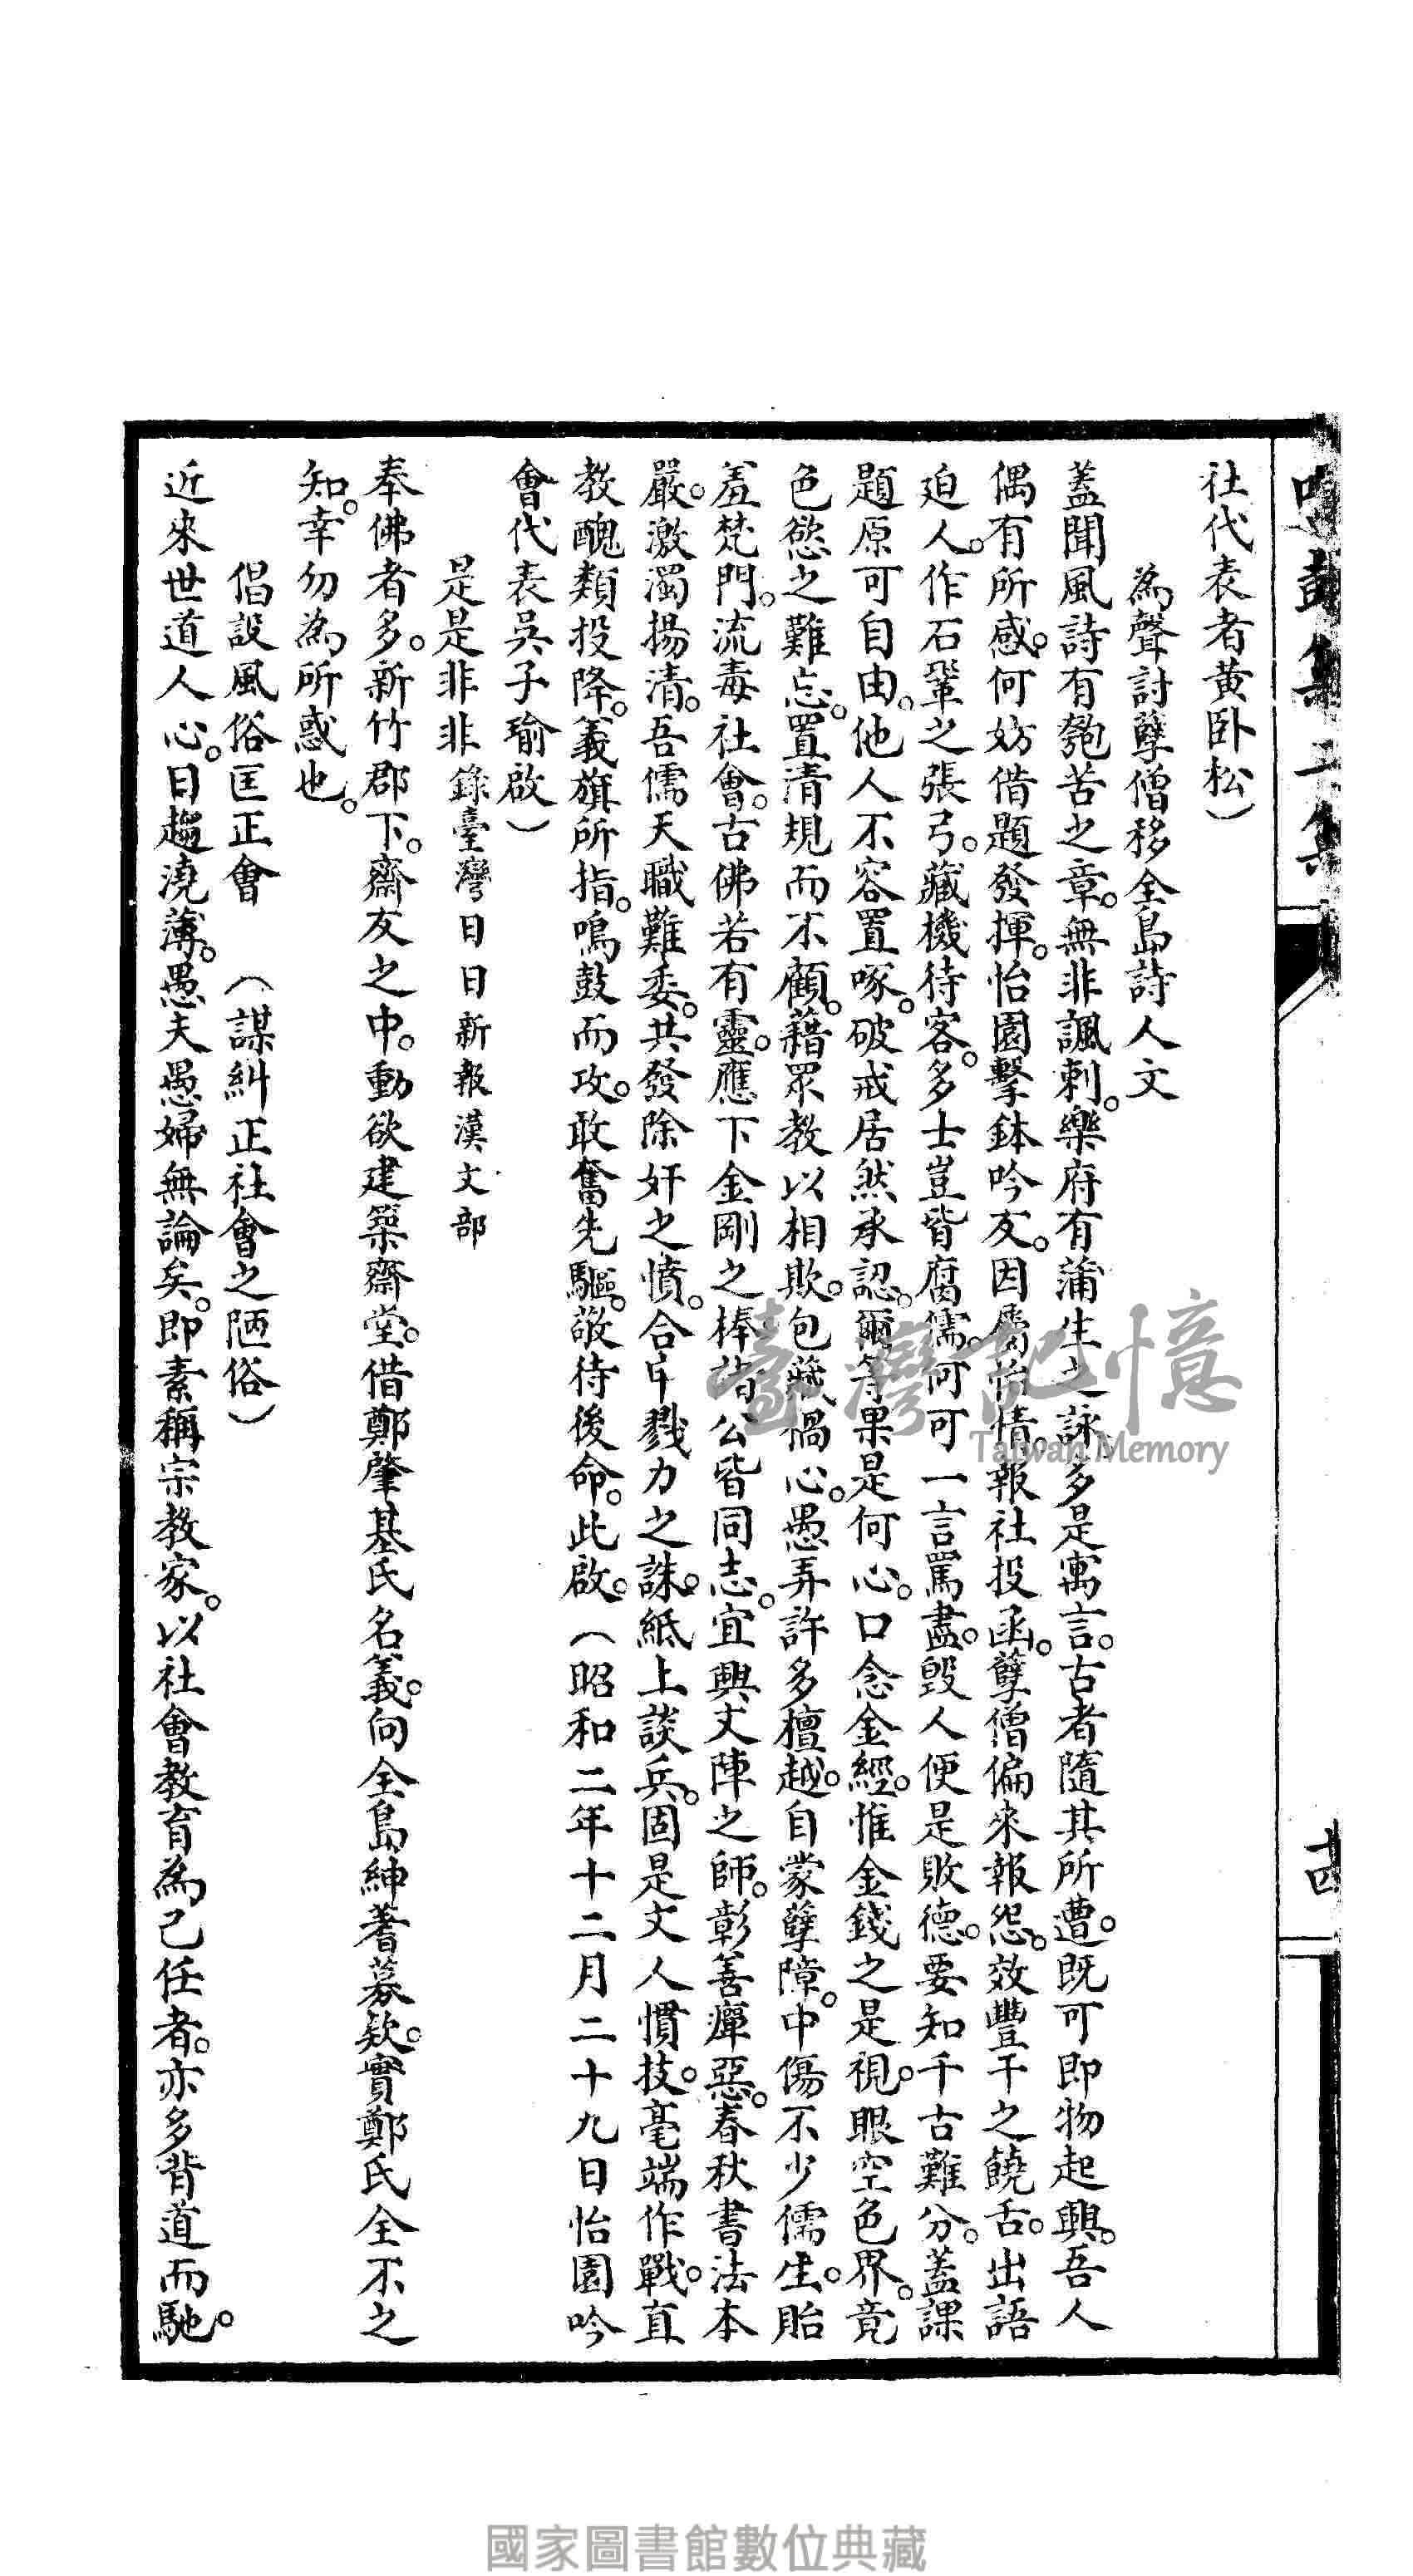 鳴鼓集二集
十四
社代表者黃卧松）
為聲討孽僧移全島詩人文
蓋聞風詩有匏苦之章。無非諷刺。樂府有蒲生之詠。多是寓言。古者隨其所遭。既可即物起興。吾人
偶有所感。何妨借題發揮。怡園擊鉢吟友。因屬怡情。報社投函。孽僧偏來報怨。效豐干之饒舌。出語
迫人。作石鞏之張弓。藏機待客。多士豈皆腐儒。何可一言罵盡。毀人便是敗德。要知千古難分。蓋課
題原可自由。他人不容置啄。破戒居然承認。爾等果是何心。口念金經。惟金錢之是視。眼空色界。竟
色慾之難忘。置清規而不顧。藉眾教以相欺。包藏禍心。愚弄許多檀越。自蒙孽障。中傷不少儒生。貽
羞梵門。流毒社會。古佛若有靈。應下金剛之棒。諸公皆同志。宜興文陣之師。彰善癉惡。春秋書法本
嚴。激濁揚清。吾儒天職難委。共發除奸之憤。合力戮力之誅。紙上談兵。固是文人慣技。毫端作戰。直
教醜類投降。義旗所指。鳴鼓而攻。敢奮先驅。敬待後命。此啟。（昭和二年十二月二十九日怡園吟
會代表吳子瑜啟）
是是非非錄臺灣日日新報漢文部
奉佛者多。新竹郡下。齋友之中。動欲建築齋堂。借鄭肇基氏名義。向全島紳耆募欵。實鄭氏全不之
知。幸勿為所惑也。
倡設風俗匡正會　（謀糾正社會之陋俗）
近來世道人心。日趨澆薄。愚夫愚婦無論矣。即素稱宗教家。以社會教育為己任者。亦多背道而馳。
臺灣記憶
Taiwan Memory
國家圖書館數位典藏